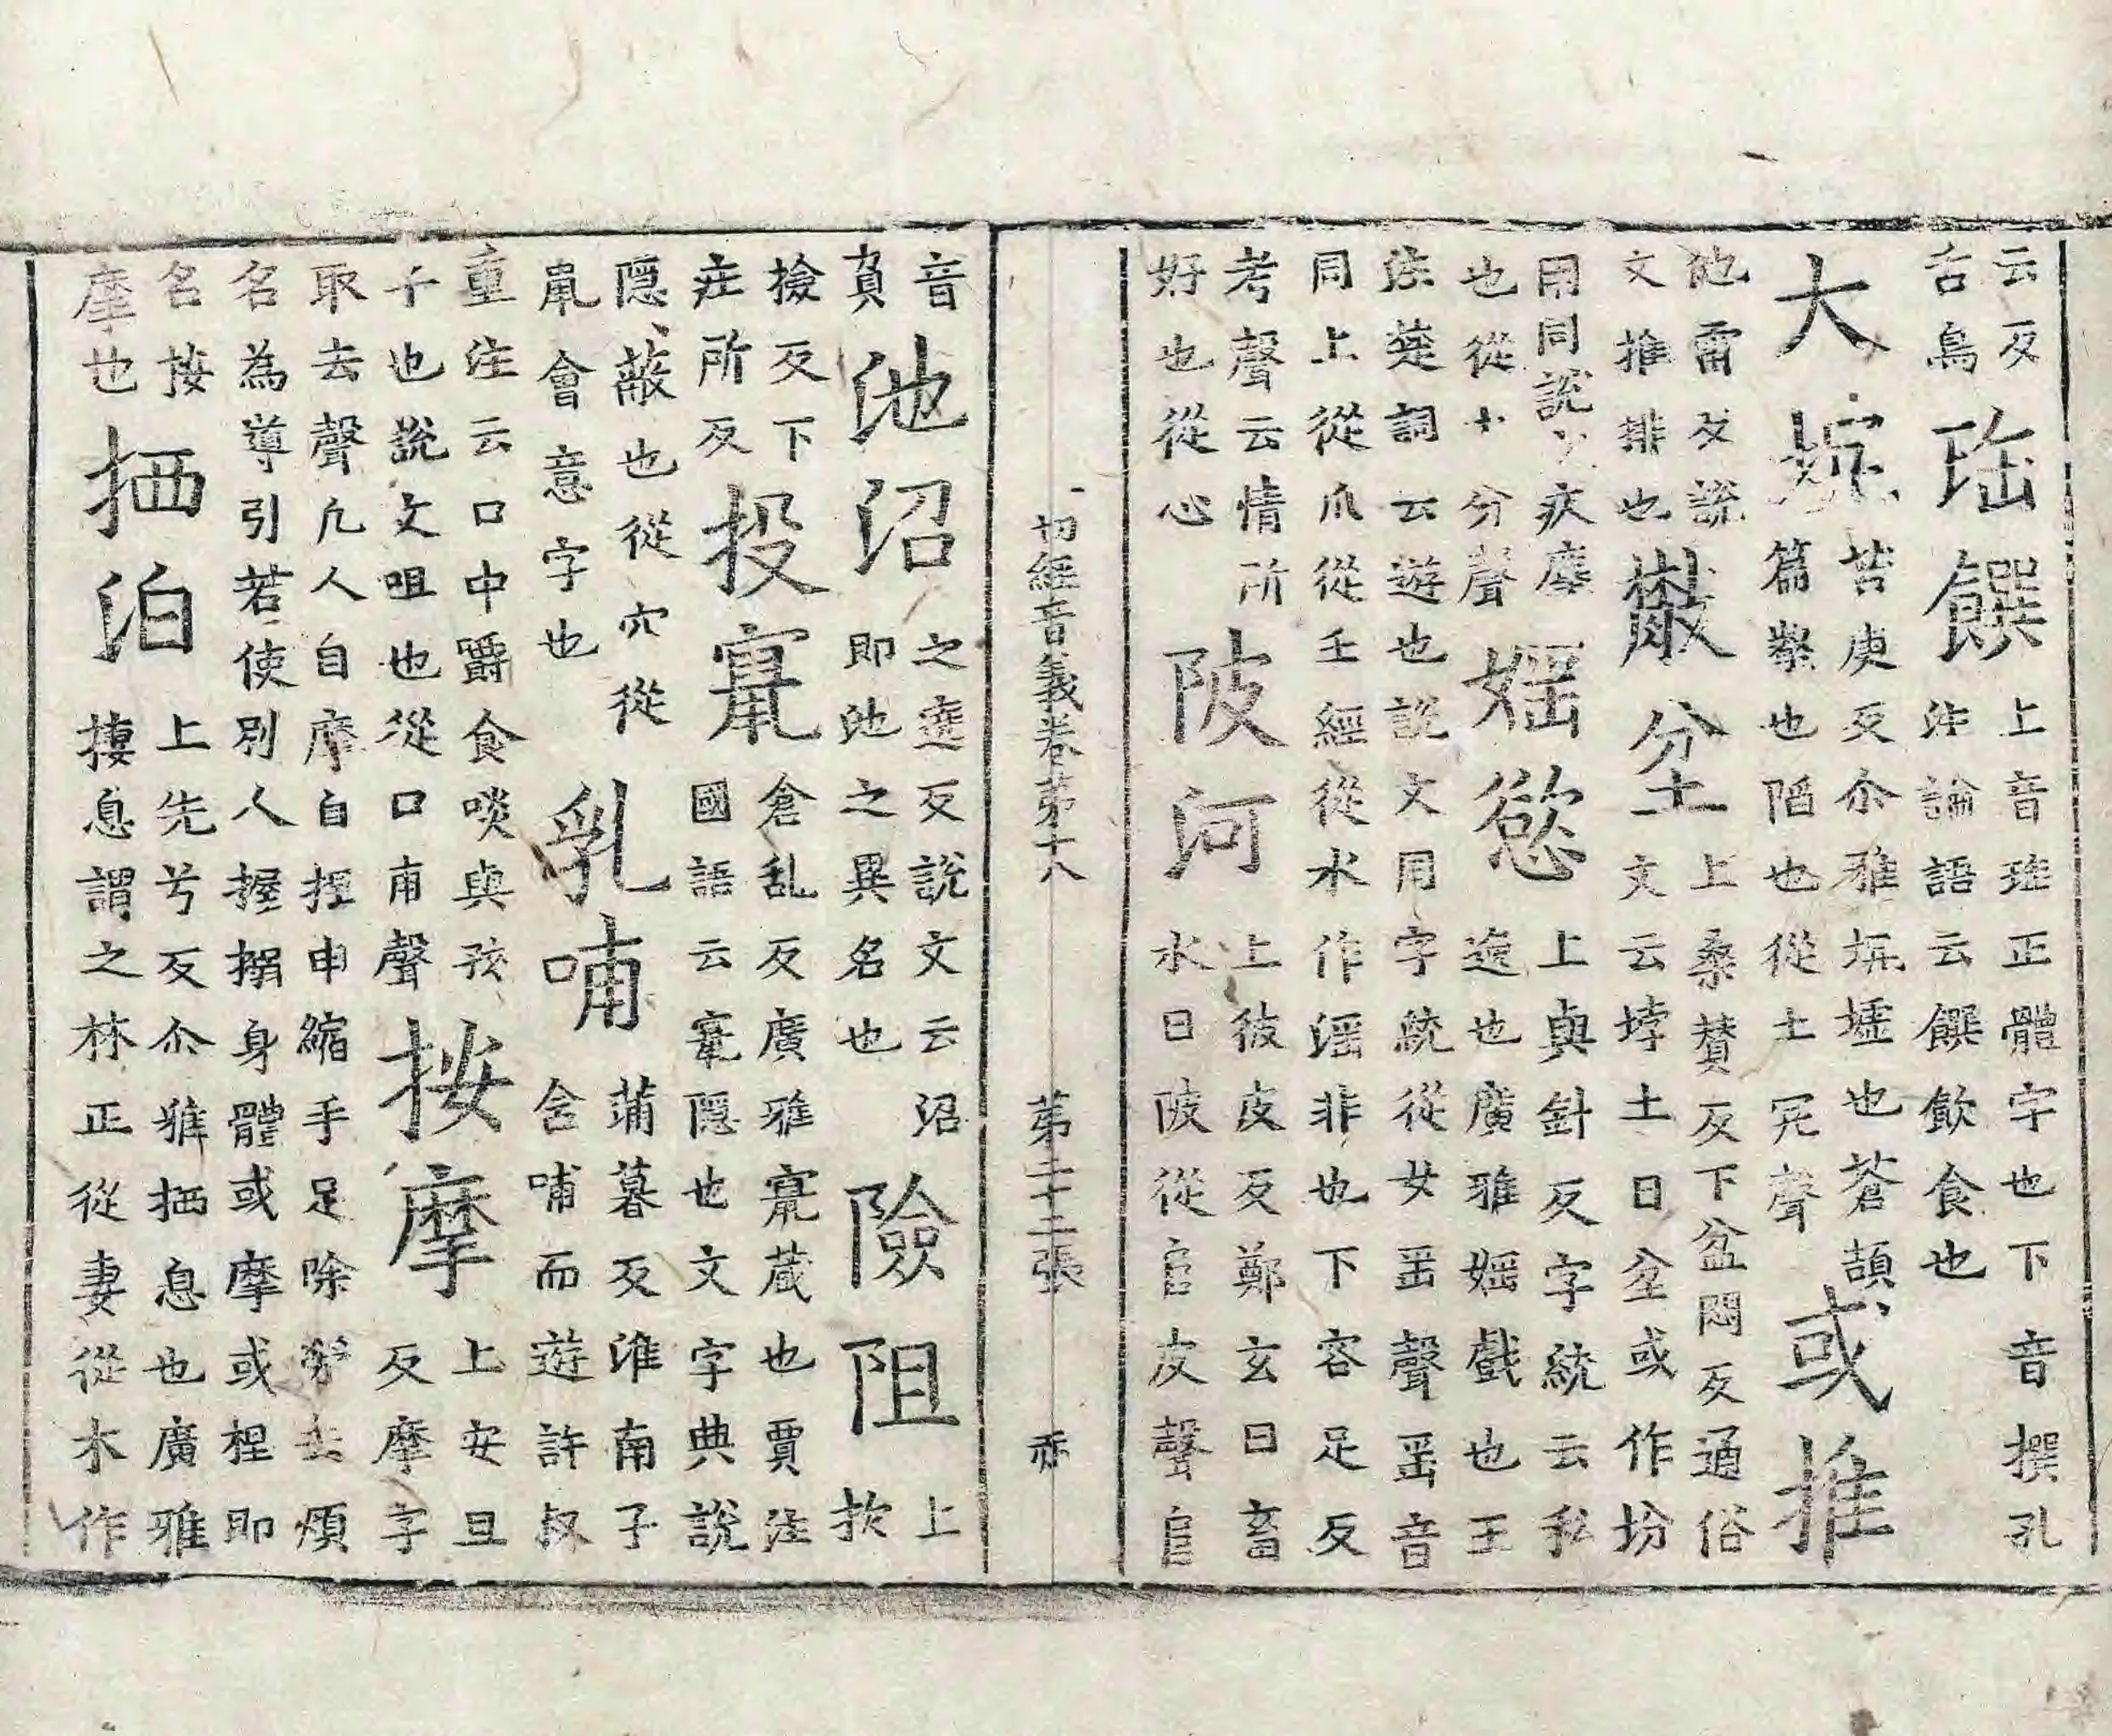 云反
舌鳥
珤饌
上音琟正體字也下音撰孔
注論語云饌飲食也
大坑
苦庚反尒雅坑墟也蒼頡
篇壑也陷也從土冗聲
或推
他雷反說
文推排也
㪚坌
上桑賛反下盆悶反通俗
文文云㘿土曰坌或作坋
用同說文疾塵
也從土分聲
婬慾
上與針反字統云私
逸也廣雅婬戲也王
注楚詞云遊也說文用字統從女㸒聲㸒音
同上從爪從壬經從水作滛非也下容足反
考聲云情所
好也從心
陂河
上彼皮反鄭玄曰畜
水曰陂從𨸏皮聲𨸏
切經音義卷第十八 第二十二張 亦
音
負
池沼
之遶反說文云沼
即池之異名也
險阻
上
㩻
撿反下
莊所反
投竄
倉乱反廣雅竄蔵也賈注
國語云竄隱也文字典說
隱蔽也從穴從
鼠會意字也
乳哺
蒲暮反淮南子
含哺而遊許叔
重注云口中嚼食啖與孩
子也說文咀也從口甫聲
按摩
上安旦
反摩字
取去聲凢人自摩自捏申縮手足除勞去煩
名為導引若使別人握搦身體或摩或捏即
名按
摩也
拪泊
上先兮反尒雅拪息也廣雅
捿息謂之林正從妻從木作